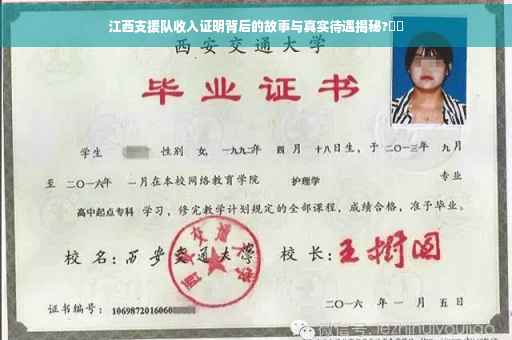 江西支援队收入证明背后的故事与真实待遇揭秘?
西安交通大学
毕业证书
学生 性别 女, 一九九二年 四月 十八日生, 于 二〇一三年 九月
至 二〇一六年 一月在本校网络教育学院 护理学 专业
高中起点专科 学习, 修完教学计划规定的全部课程, 成绩合格, 准予毕业。
校名: 西安交通大学 校长: 王树国
西安交通大学
证书编号: 1069872016060
二〇一六年 一月 五日
微信号: jezhihuiyoujiao